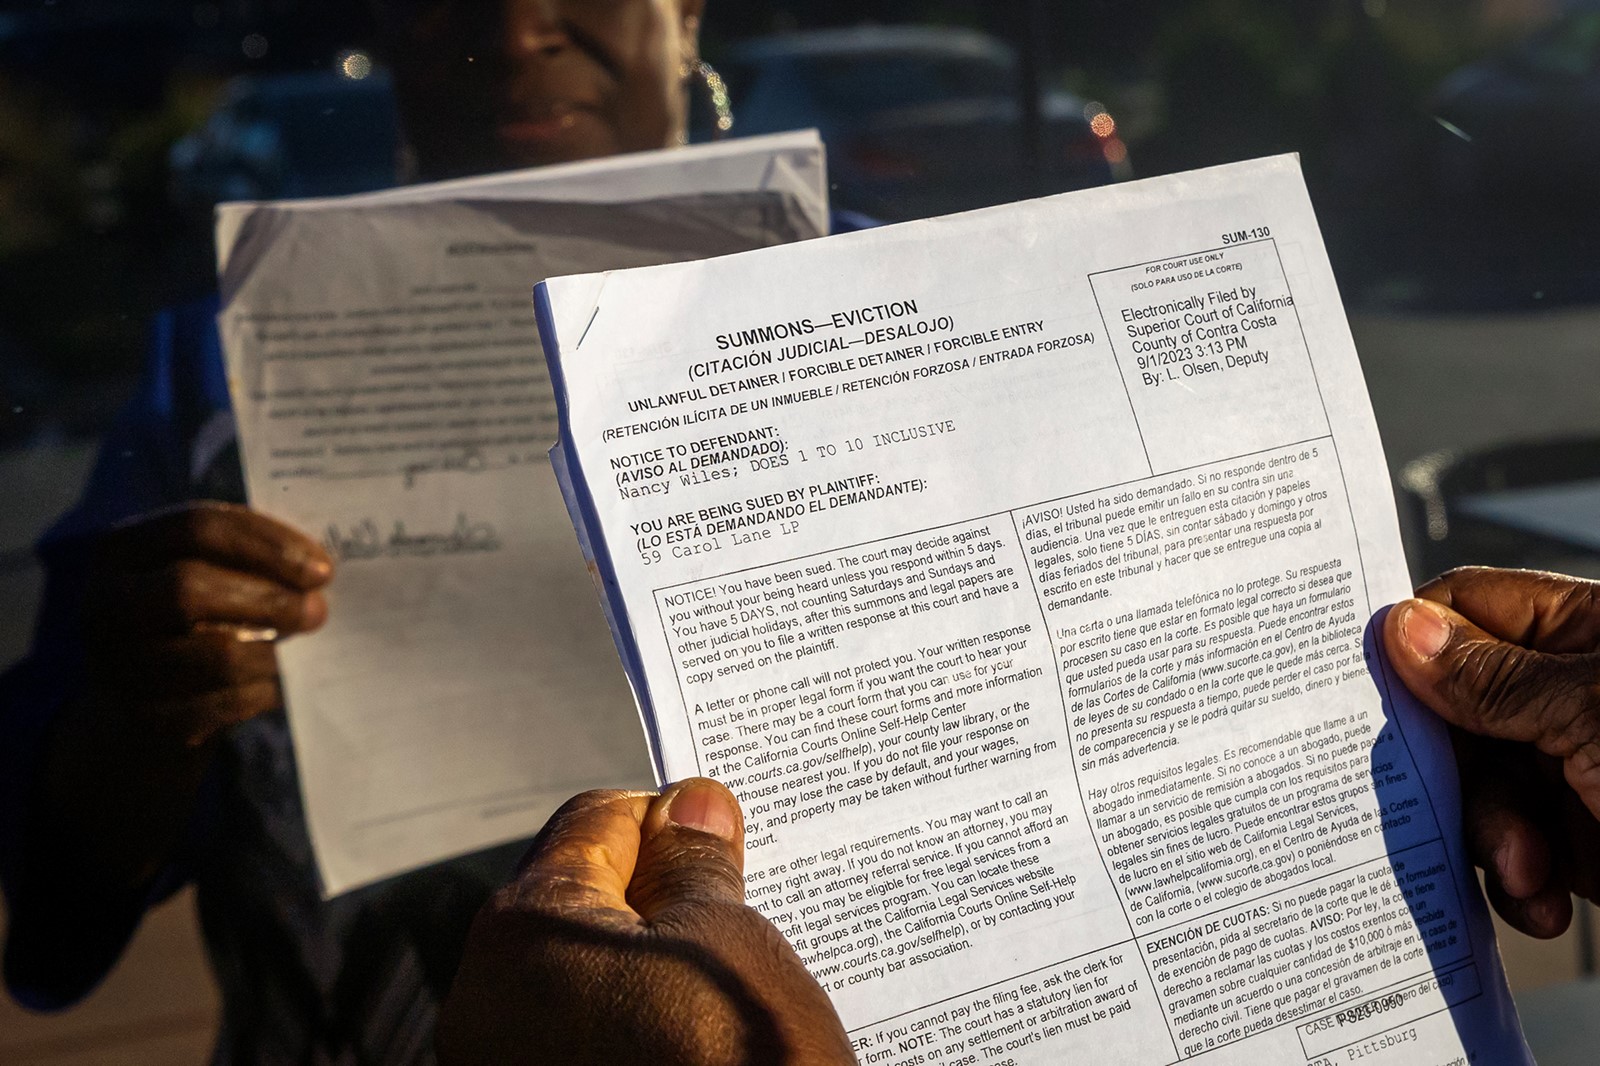 SUM-130
SUMMONS—EVICTION
(CITACIÓN JUDICIAL—DESALOJO)
UNLAWFUL DETAINER / FORCIBLE DETAINER / FORCIBLE ENTRY
(RETENCIÓN ILÍCITA DE UN INMUEBLE / RETENCIÓN FORZOSA / ENTRADA FORZOSA)
FOR COURT USE ONLY
(SOLO PARA USO DE LA CORTE)
Electronically Filed by
Superior Court of California
County of Contra Costa
9/1/2023 3:13 PM
By: L. Olsen, Deputy
NOTICE TO DEFENDANT:
(AVISO AL DEMANDADO):
Nancy Wiles; DOES 1 TO 10 INCLUSIVE
YOU ARE BEING SUED BY PLAINTIFF:
(LO ESTÁ DEMANDANDO EL DEMANDANTE):
59 Carol Lane LP
NOTICE! You have been sued. The court may decide against
you without your being heard unless you respond within 5 days.
You have 5 DAYS, not counting Saturdays and Sundays and
other judicial holidays, after this summons and legal papers are
served on you to file a written response at this court and have a
copy served on the plaintiff.
A letter or phone call will not protect you. Your written response
must be in proper legal form if you want the court to hear your
case. There may be a court form that you can use for your
response. You can find these court forms and more information
at the California Courts Online Self-Help Center
www.courts.ca.gov/selfhelp), your county law library, or the
rthouse nearest you. If you do not file your response on
, you may lose the case by default, and your wages,
ey, and property may be taken without further warning from
court.
ere are other legal requirements. You may want to call an
torney right away. If you do not know an attorney, you may
nt to call an attorney referral service. If you cannot afford an
rney, you may be eligible for free legal services from a
rofit legal services program. You can locate these
ofit groups at the California Legal Services website
awhelpca.org), the California Courts Online Self-Help
www.courts.ca.gov/selfhelp), or by contacting your
rt or county bar association.
¡AVISO! Usted ha sido demandado. Si no responde dentro de 5
días, el tribunal puede emitir un fallo en su contra sin una
audiencia. Una vez que le entreguen esta citación y papeles
legales, solo tiene 5 DÍAS, sin contar sábado y domingo y otros
días feriados del tribunal, para presentar una respuesta por
escrito en este tribunal y hacer que se entregue una copia al
demandante.
Una carta o una llamada telefónica no lo protege. Su respuesta
por escrito tiene que estar en formato legal correcto si desea que
procesen su caso en la corte. Es posible que haya un formulario
que usted pueda usar para su respuesta. Puede encontrar estos
formularios de la corte y más información en el Centro de Ayuda
de las Cortes de California (www.sucorte.ca.gov), en la biblioteca
de leyes de su condado o en la corte que le quede más cerca. Si
no presenta su respuesta a tiempo, puede perder el caso por falta
de comparecencia y se le podrá quitar su sueldo, dinero y bienes
sin más advertencia.
Hay otros requisitos legales. Es recomendable que llame a un
abogado inmediatamente. Si no conoce a un abogado, puede
llamar a un servicio de remisión a abogados. Si no puede pagar a
un abogado, es posible que cumpla con los requisitos para
obtener servicios legales gratuitos de un programa de servicios
legales sin fines de lucro. Puede encontrar estos grupos sin fines
de lucro en el sitio web de California Legal Services,
(www.lawhelpcalifornia.org), en el Centro de Ayuda de las Cortes
de California, (www.sucorte.ca.gov) o poniéndose en contacto
con la corte o el colegio de abogados local.
ER: If you cannot pay the filing fee, ask the clerk for
form. NOTE: The court has a statutory lien for
costs on any settlement or arbitration award of
il case. The court's lien must be paid
se.
EXENCIÓN DE CUOTAS: Si no puede pagar la cuota de
presentación, pida al secretario de la corte que le dé un formulario
de exención de pago de cuotas. AVISO: Por ley, la corte tiene
derecho a reclamar las cuotas y los costos exentos con un
gravamen sobre cualquier cantidad de $10,000 ó más recibida
mediante un acuerdo o una concesión de arbitraje en un caso de
derecho civil. Tiene que pagar el gravamen de la corte antes de
que la corte pueda desestimar el caso.
CASE
mero del caso):
TA, Pittsburg